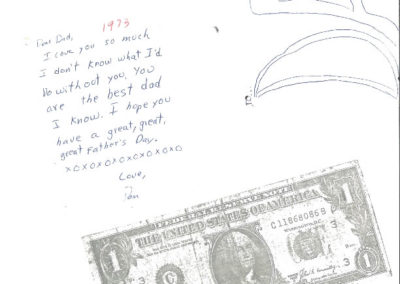 1973
Dear Dad,
I love you so much
I don't know what I'd
Do without you. You
are the best dad
I know. I hope you
have a great, great,
great Father's Day.
xoxoxoxoxoxoxo
Love,
THE UNITED STATES OF AMERICA
C11868086B
WASHINGTON, D.C.
1
1
1
3
3
3
G